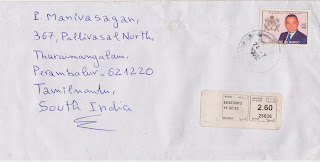 P. Manivasagan,
367, Pallivasal North,
Thuraimangalam,
Perambalur-621220
Tamilnadu,
South India
2.60
25036